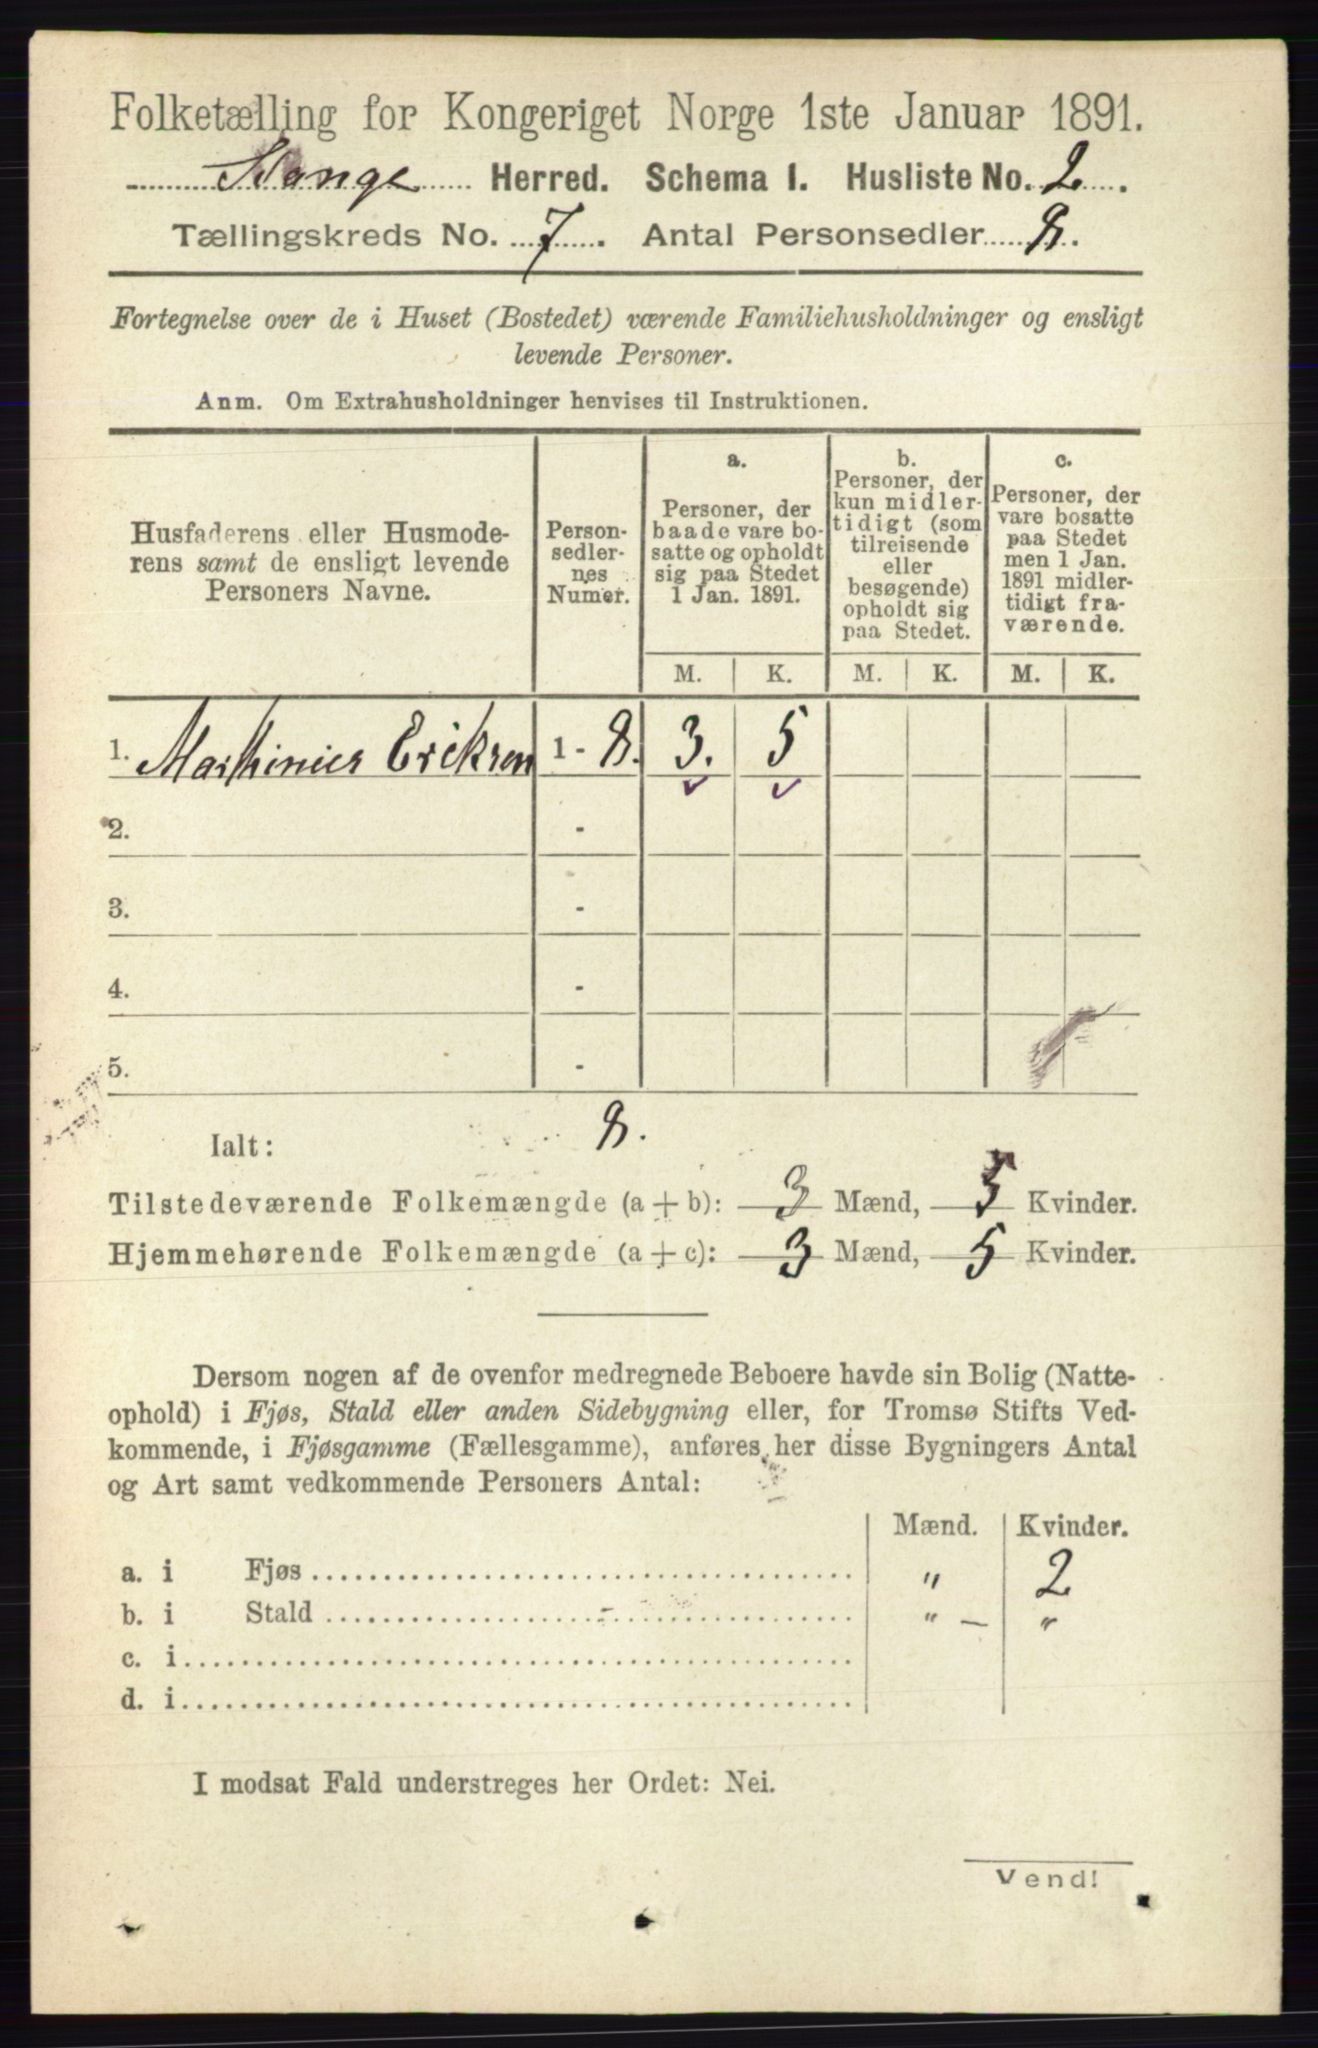 Folketælling for Kongeriget Norge 1ste Januar 1891.
Stange Herred. Schema 1. Husliste No. 2.
Tællingskreds No. 7. Antal Personsedler 8.
Fortegnelse over de i Huset (Bostedet) værende Familiehusholdninger og ensligt
levende Personer.
Anm. Om Extrahusholdninger henvises til Instruktionen.
Husfaderens eller Husmode-
rens samt de ensligt levende
Personers Navne.
Person-
sedler-
nes
Numer.
a.
Personer, der
baade vare bo-
satte og opholdt
sig paa Stedet
1 Jan. 1891.
b.
Personer, der
kun midler-
tidigt (som
tilreisende
eller
besøgende)
opholdt sig
paa Stedet.
c.
Personer, der
vare bosatte
paa Stedet
men 1 Jan.
1891 midler-
tidigt fra-
værende.
M. K. M. K. M. K.
1. Marthinius Eriksen 1 - 8. 3. 5
2. -
3. -
4. -
5. -
Ialt: 8.
Tilstedeværende Folkemængde (a + b): 3 Mænd, 5 Kvinder.
Hjemmehørende Folkemængde (a + c): 3 Mænd, 5 Kvinder.
Dersom nogen af de ovenfor medregnede Beboere havde sin Bolig (Natte-
ophold) i Fjøs, Stald eller anden Sidebygning eller, for Tromsø Stifts Ved-
kommende, i Fjøsgamme (Fællesgamme), anføres her disse Bygningers Antal
og Art samt vedkommende Personers Antal:
Mænd. Kvinder.
a. i Fjøs " 2
b. i Stald " - "
c. i
d. i
I modsat Fald understreges her Ordet: Nei.
Vend!